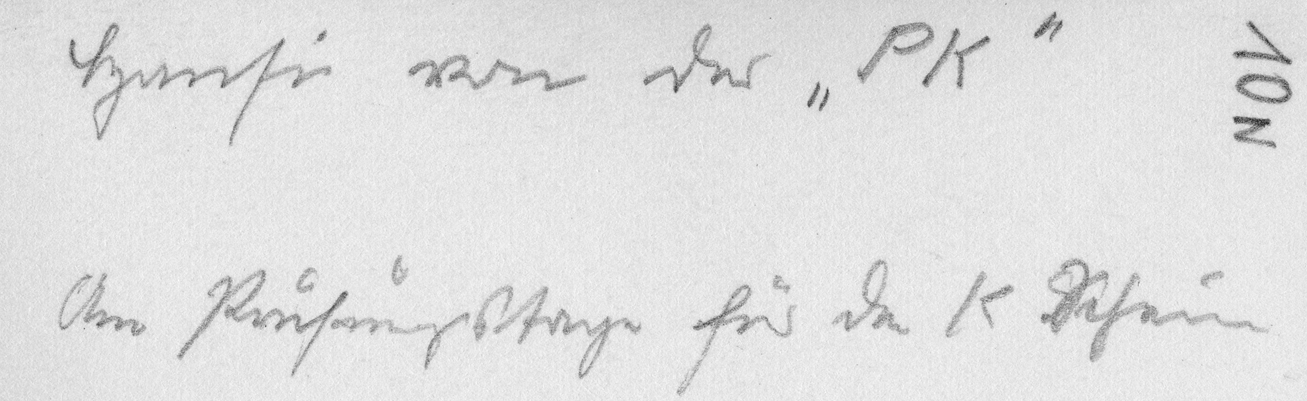 von der „PK"
NOV
Am Prüfungstage für den K Schein